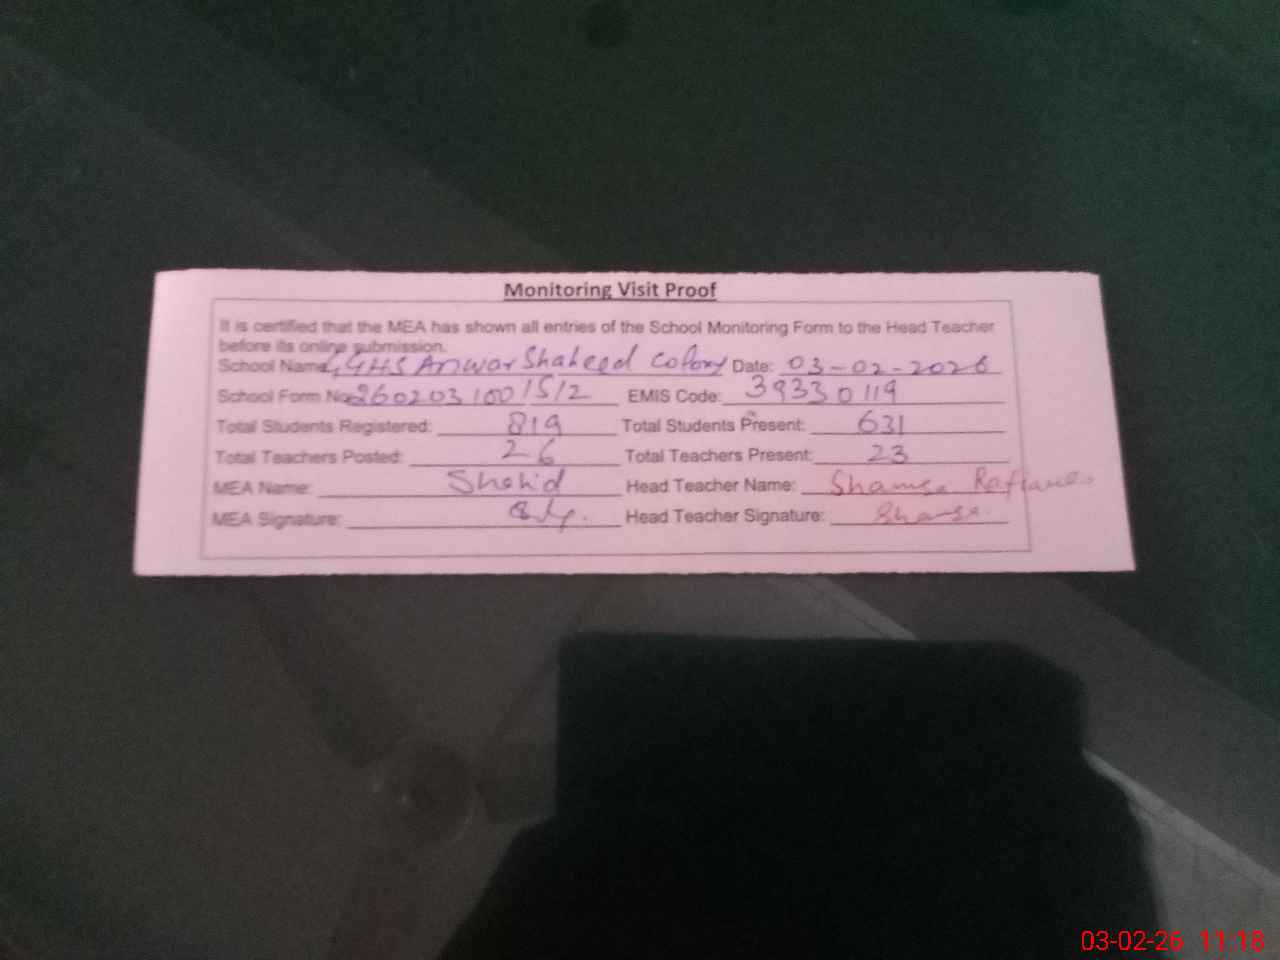 Monitoring Visit Proof
It is certified that the MEA has shown all entries of the School Monitoring Form to the Head Teacher
before its online submission.
School Name: GGHS Anwar Shaheed Colony Date: 03-02-2026
School Form No: 2602031001512 EMIS Code: 39330119
Total Students Registered: 819 Total Students Present: 631
Total Teachers Posted: 26 Total Teachers Present: 23
MEA Name: Shahid Head Teacher Name: Shamsa
MEA Signature: Head Teacher Signature: Shamsa
03-02-26 11:18